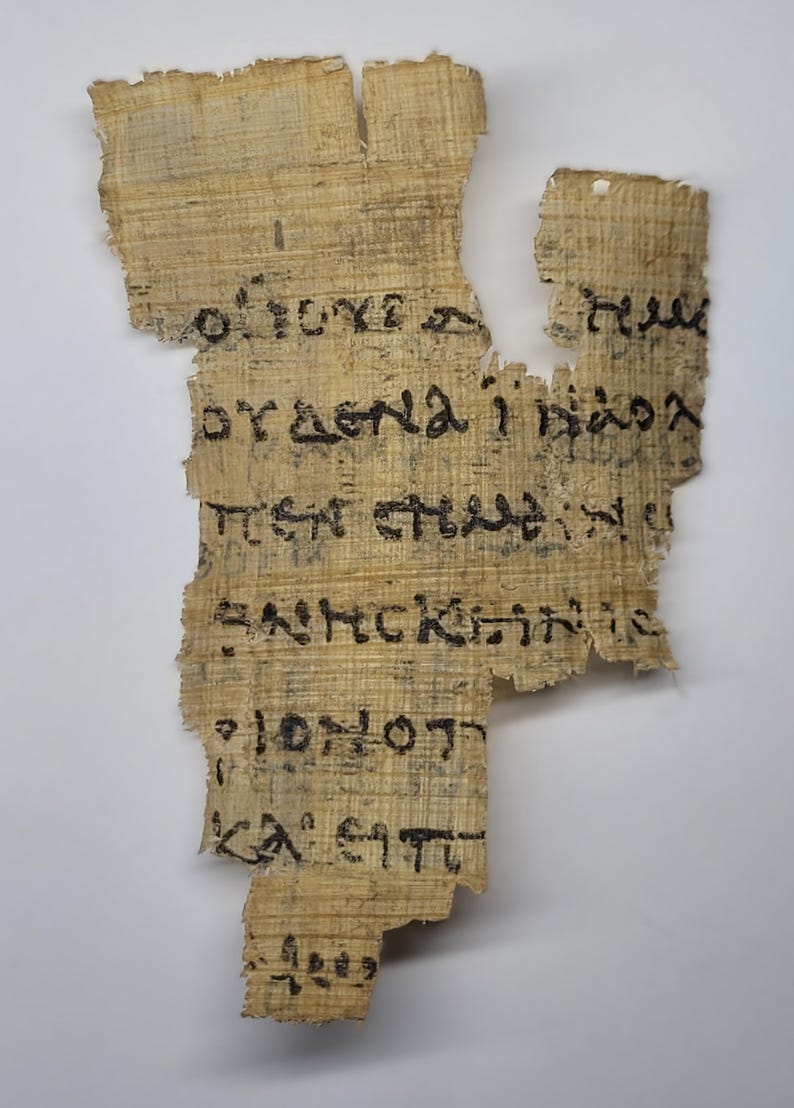 ΟΙ ΙΟΥΔΑ ΗΜΕ
ΟΥΔΕΝΑ ΪΝΑ Ο Λ
ΠΕΝ ϹΗΜΑΙΝΩ
ΘΝΗϹΚΕΙΝ ΙϹ
ΡΙΟΝ Ο Π
ΚΑΙ ΕΙΠ